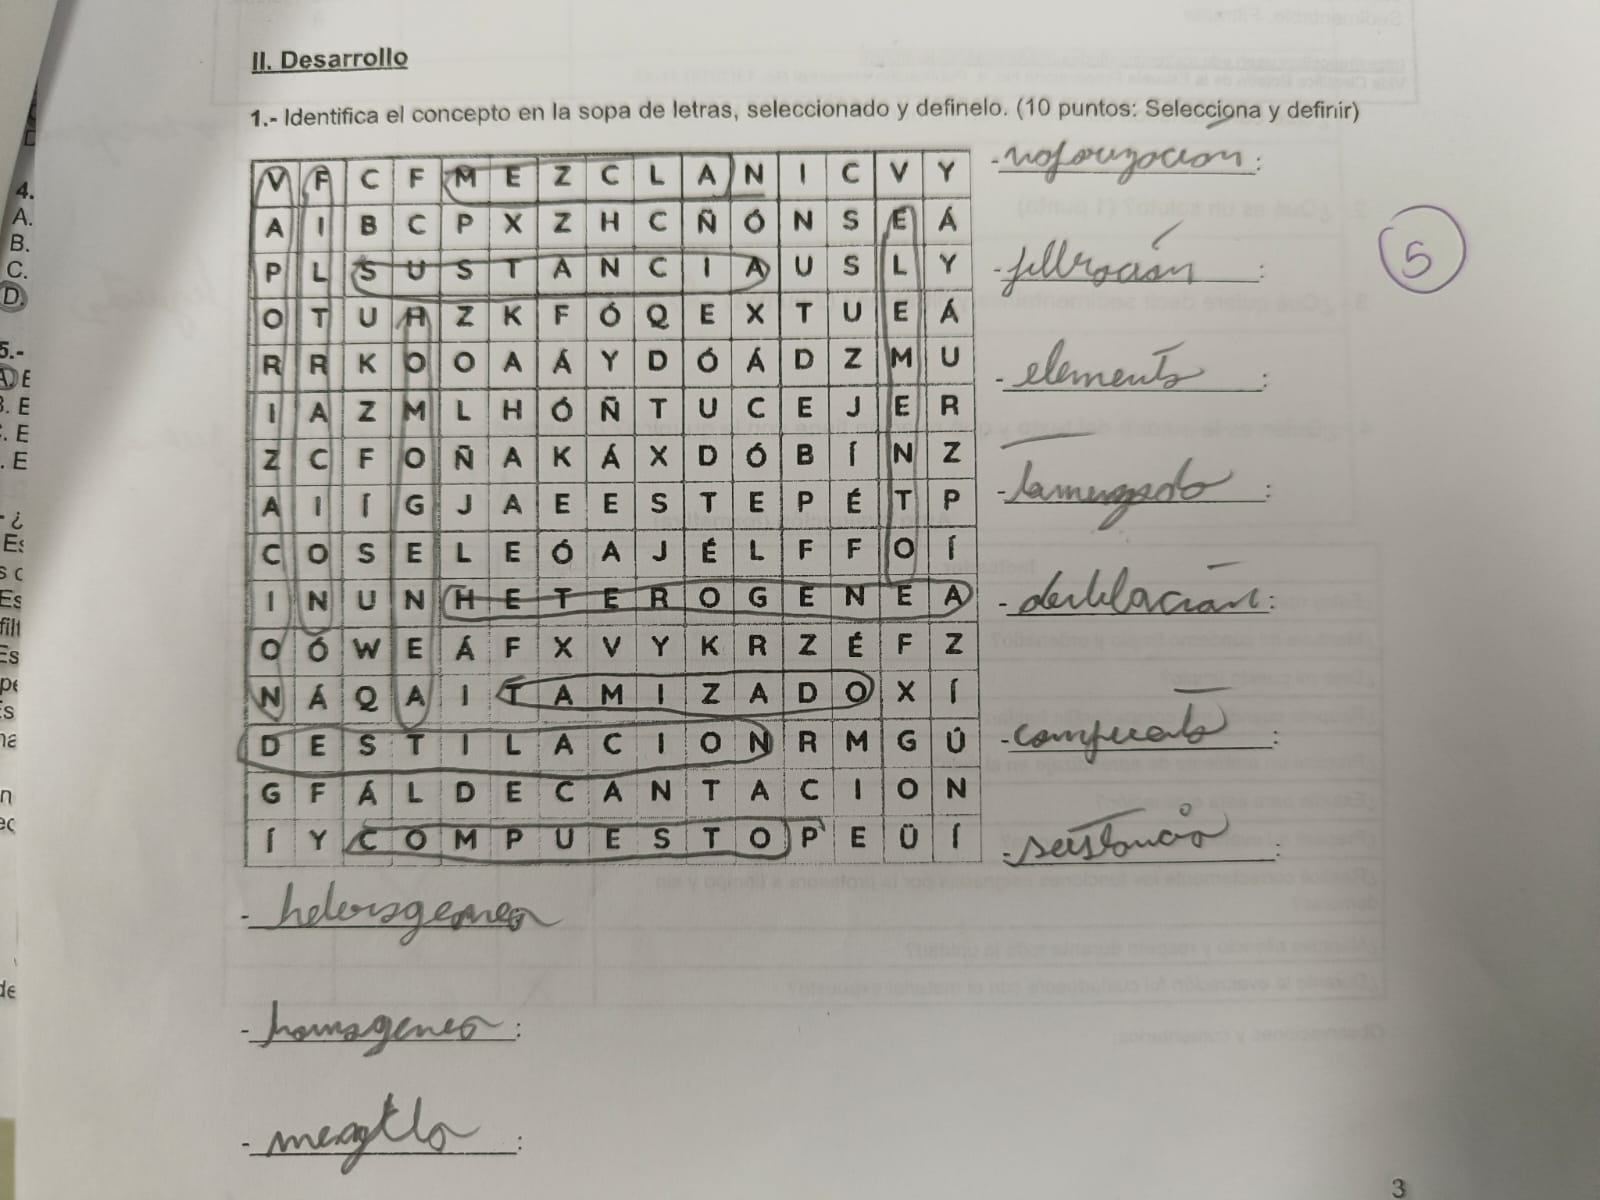 II. Desarrollo
1.- Identifica el concepto en la sopa de letras, seleccionado y definelo. (10 puntos: Selecciona y definir)
V F C F M E Z C L A N I C V Y
A I B C P X Z H C Ñ Ó N S E Á
P L S U S T A N C I A U S L Y
O T U H Z K F Ó Q E X T U E Á
R R K O O A Á Y D Ó Á D Z M U
I A Z M L H Ó Ñ T U C E J E R
Z C F O Ñ A K Á X D Ó B Í N Z
A I Í G J A E E S T E P É T P
C O S E L E Ó A J É L F F O Í
I N U N H E T E R O G E N E A
O Ó W E Á F X V Y K R Z É F Z
N Á Q A I T A M I Z A D O X Í
D E S T I L A C I O N R M G Ú
G F Á L D E C A N T A C I O N
Í Y C O M P U E S T O P E Ü Í
- :
- filtración :
- elemento :
- :
- :
- compuesto :
- sustancia :
- heterogenea
- homogenea :
- :
5
3
4.
A.
B.
C.
D.
5.-